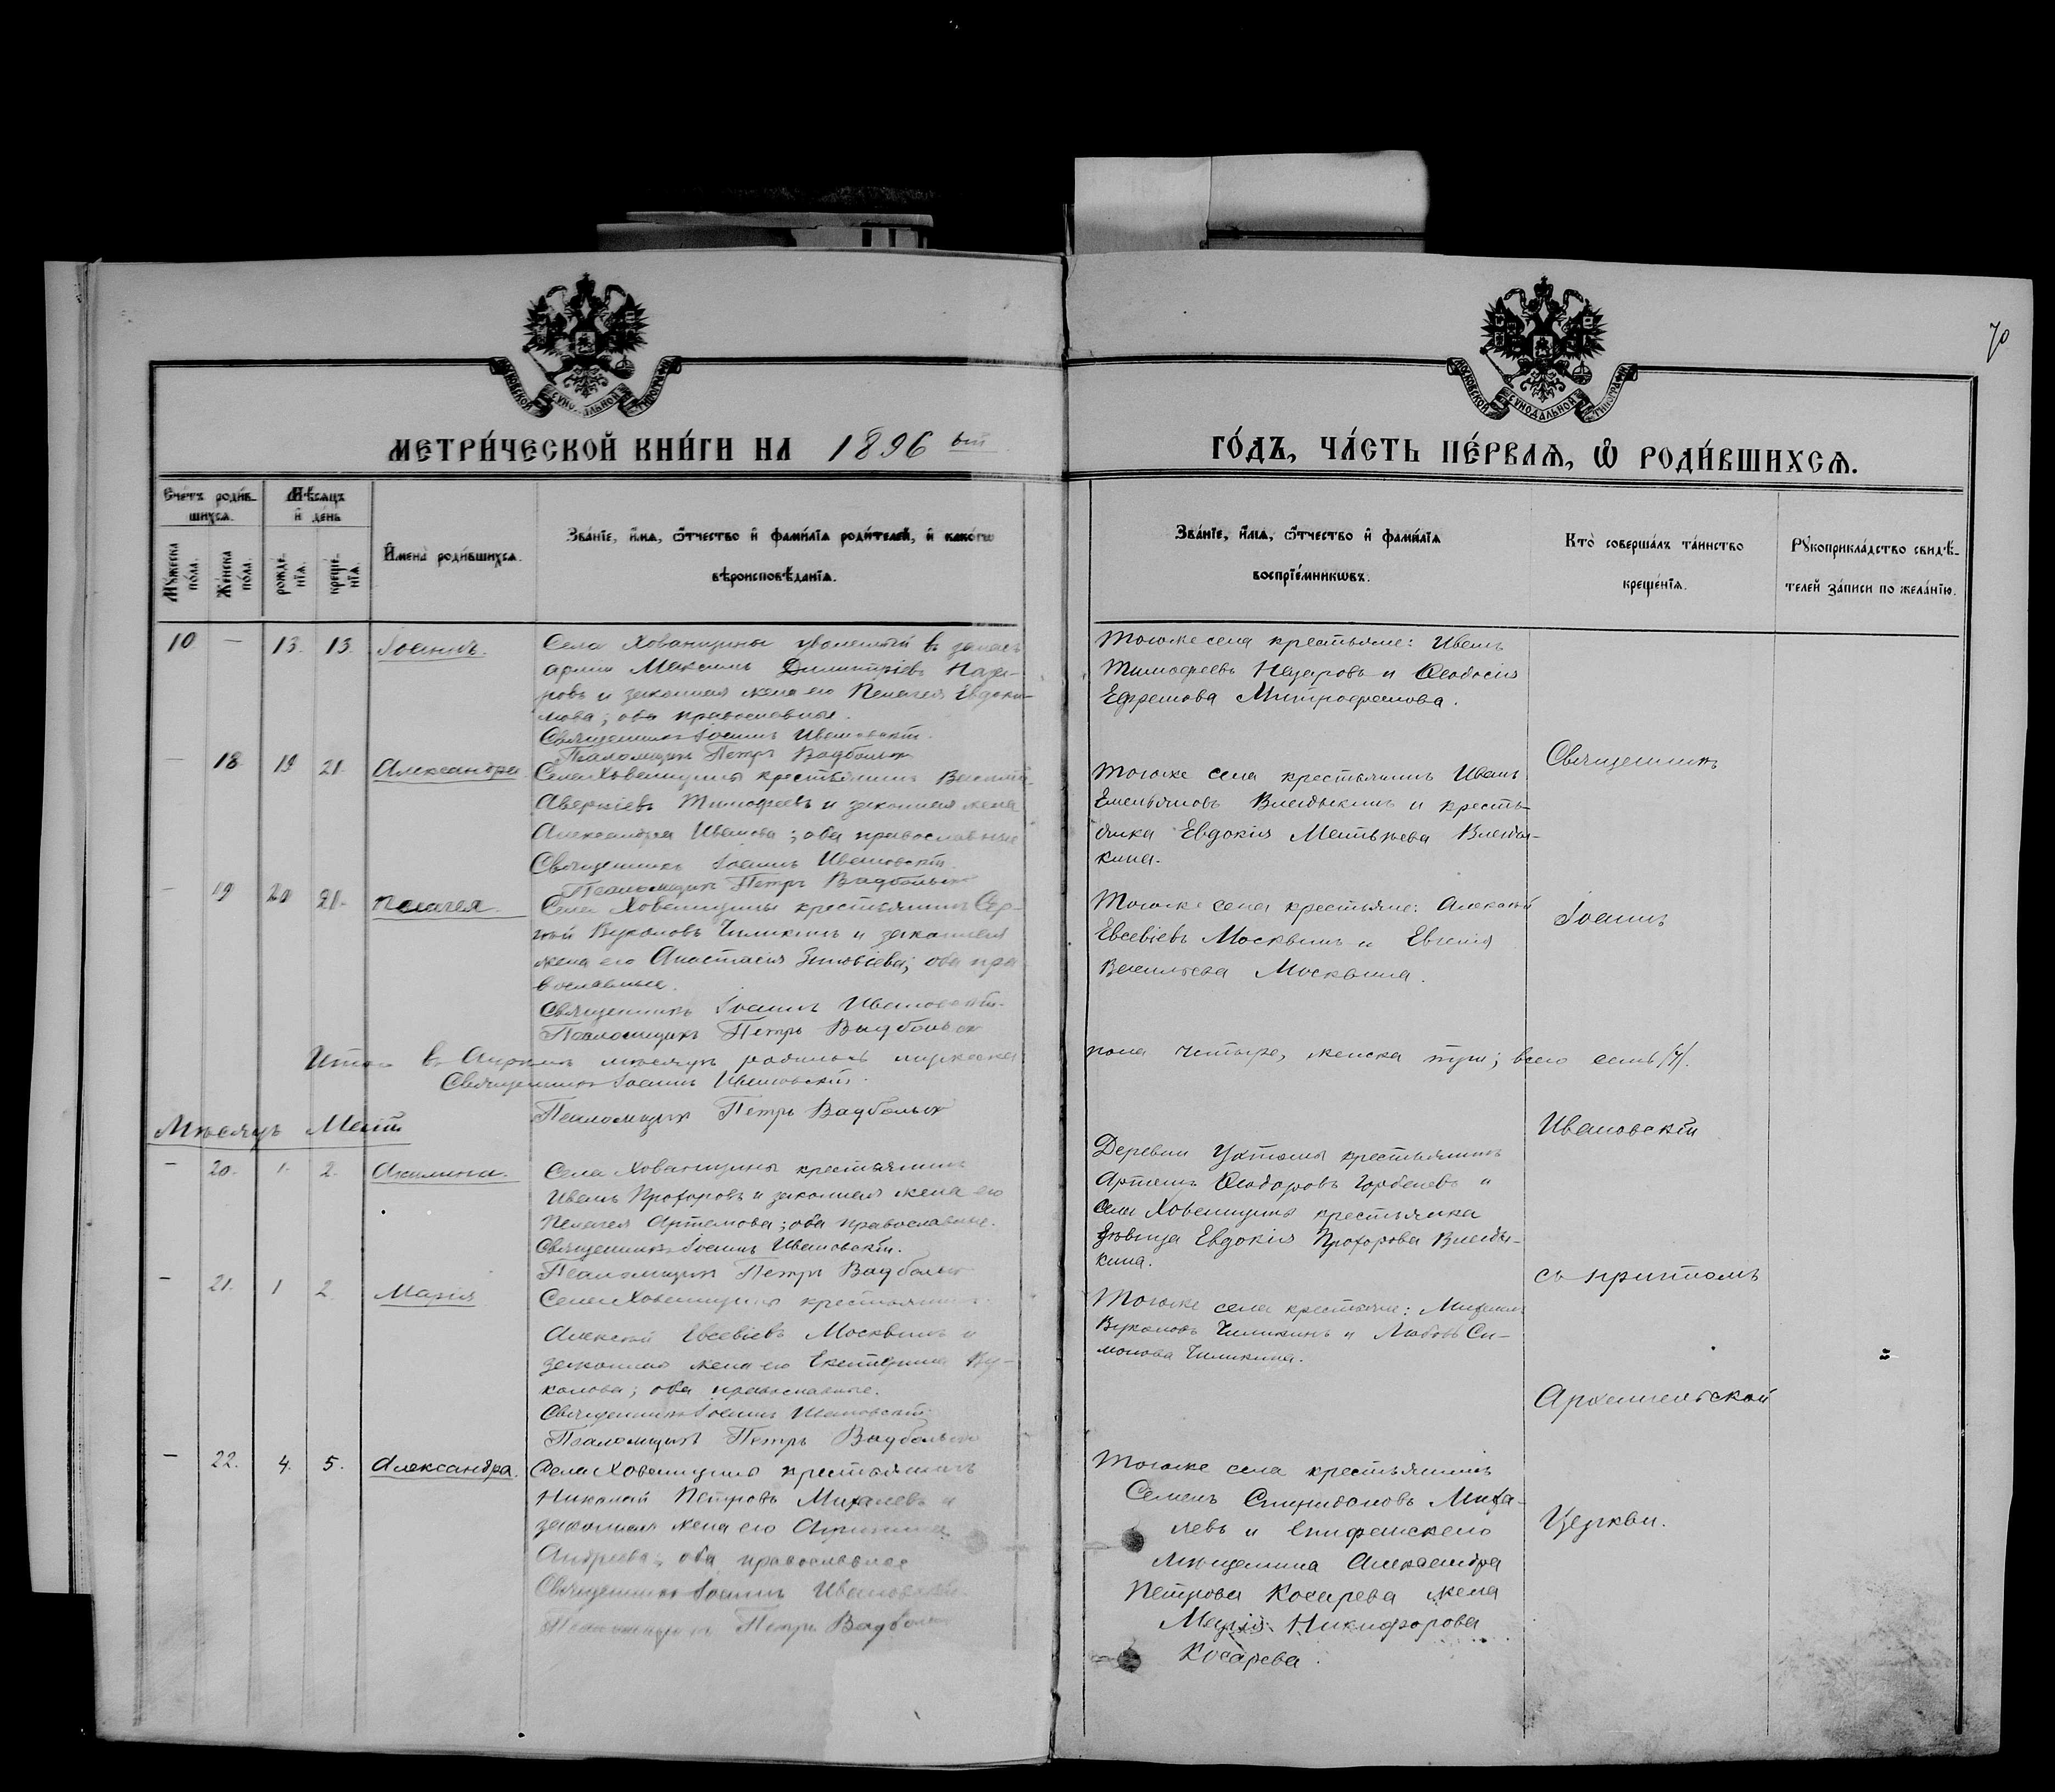 70
МОСКОВСКОЙ СѴНОДАЛЬНОЙ ТИПОГРАФІИ
МОСКОВСКОЙ СѴНОДАЛЬНОЙ ТИПОГРАФІИ
МЕТРИ́ЧЕСКОЙ КНИ́ГИ НА 1896 ый
ГО́ДЪ, ЧА́СТЬ ПЕ́РВАѦ, Ѡ҆ РОДИ́ВШИХСѦ.
Сче́тъ роди́в-
шихсѧ.
Мѣ́сѧцъ
и҆ де́нь
Мꙋ́жеска по́ла.
Же́нска по́ла.
рожде́-
нїѧ.
креще́-
нїѧ.
И҆мена̀ роди́вшихсѧ.
Зва́нїе, и҆́мѧ, ѻ҆́тчество и҆ фами́лїѧ роди́телей, и҆ како́гѡ
вѣроисповѣ́данїѧ.
Зва́нїе, и҆́мѧ, ѻ҆́тчество и҆ фами́лїѧ
воспрїе́мникѡвъ.
Кто̀ соверша́лъ та́инство
креще́нїѧ.
Рꙋкоприкла́дство свидѣ́-
телей за́писи по жела́нїю.
10 — 13. 13. Іоаннъ.
Села Хованщины уволенный въ запасъ
арміи Максимъ Димитріевъ Наза-
ровъ и законная жена его Пелагея Евдоки-
мова; оба православные.
Священникъ Іоаннъ Ивановскій.
Псаломщикъ Петръ Вадбольск
Тогоже села крестьяне: Иванъ
Тимофеевъ Назаровъ и Ѳеодосія
Ефремова Митрофанова.
— 18. 19 21. Александра.
Села Хованщины крестьянинъ Василій
Аверкіевъ Тимофеевъ и законная жена
Александра Иванова; оба православные
Священникъ Іоаннъ Ивановскій.
Псаломщикъ Петръ Вадбольск
Тогоже села крестьянинъ Иванъ
Емельяновъ Владыкинъ и кресть-
янка Евдокія Матвѣева Влады-
кина.
— 19 20 21. Пелагея.
Села Хованщины крестьянинъ Сер-
гѣй Вуколовъ Чиликинъ и законная
жена его Анастасія Зиновіева; оба пра-
вославные.
Священникъ Іоаннъ Ивановскій.
Псаломщикъ Петръ Вадбольск
Тогоже села крестьяне: Алексѣй
Евсевіевъ Москвинъ и Евгенія
Васильева Москвина.
Итого въ Апрѣлѣ мѣсяцѣ родилось мужеска
пола четыре, женска три; всего семь (7).
Священникъ Іоаннъ Ивановскій.
Псаломщикъ Петръ Вадбольск
Мѣсяцъ Май
— 20. 1. 2. Акилина.
Села Хованщины крестьянинъ
Иванъ Прохоровъ и законная жена его
Пелагея Артемова; оба православные.
Священникъ Іоаннъ Ивановскій.
Псаломщикъ Петръ Вадбольск
Деревни крестьянинъ
Артемъ Ѳеодоровъ Горбачевъ и
села Хованщины крестьянка
дѣвица Евдокія Прохорова Влады-
кина.
— 21. 1 2 Марія
Села Хованщины крестьянинъ
Алексѣй Евсевіевъ Москвинъ и
законная жена его Екатерина Ву-
колова; оба православные.
Священникъ Іоаннъ Ивановскій.
Псаломщикъ Петръ Вадбольск
Тогоже села крестьяне: Михаилъ
Вуколовъ Чиликинъ и Любовь Си-
монова Чиликина.
— 22. 4. 5. Александра.
Села Хованщины крестьянинъ
Николай Петровъ Михалевъ и
законная жена его
Андреева; оба православные
Священникъ Іоаннъ Ивановскій.
Псаломщикъ Петръ Вадбольск
Тогоже села крестьянинъ
Семенъ Спиридоновъ Миха-
левъ и Епифанскаго
мѣщанина Александра
Петрова Косарева жена
Марія Никифорова
Косарева.
Священникъ
Іоаннъ
Ивановскій
съ причтомъ
Архангельской
Церкви.